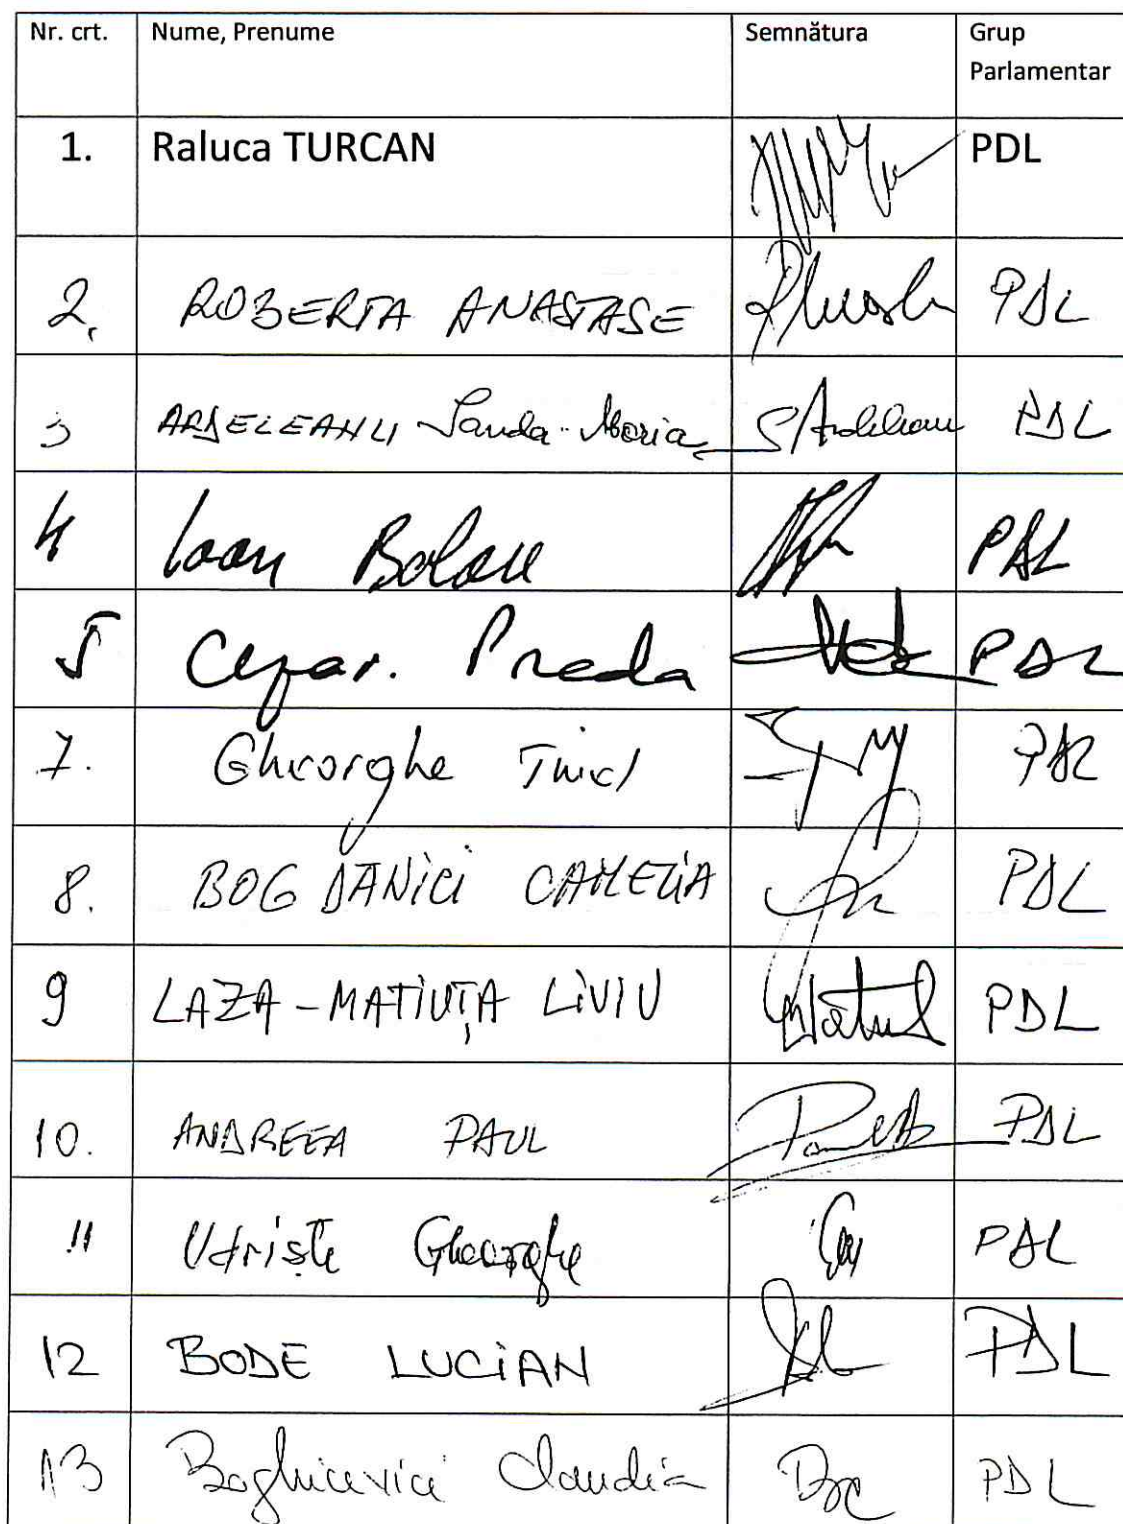 Nr. crt. Nume, Prenume Semnătura Grup
Parlamentar
1. Raluca TURCAN PDL
2. ROBERTA ANASTASE PDL
3 ARDELEANU Sanda-Maria S/Ardeleanu PDL
4 Ioan Bolan PDL
5 Cezar. Preda PDL
7. Gheorghe PDL
8. BOGDANICI CAMELIA PDL
9 LAZA-MATIUȚA LIVIU PDL
10. ANDREEA PAUL PDL
11 Udriște Gheorghe PDL
12 BODE LUCIAN PDL
13 Boghicevici Claudia PDL